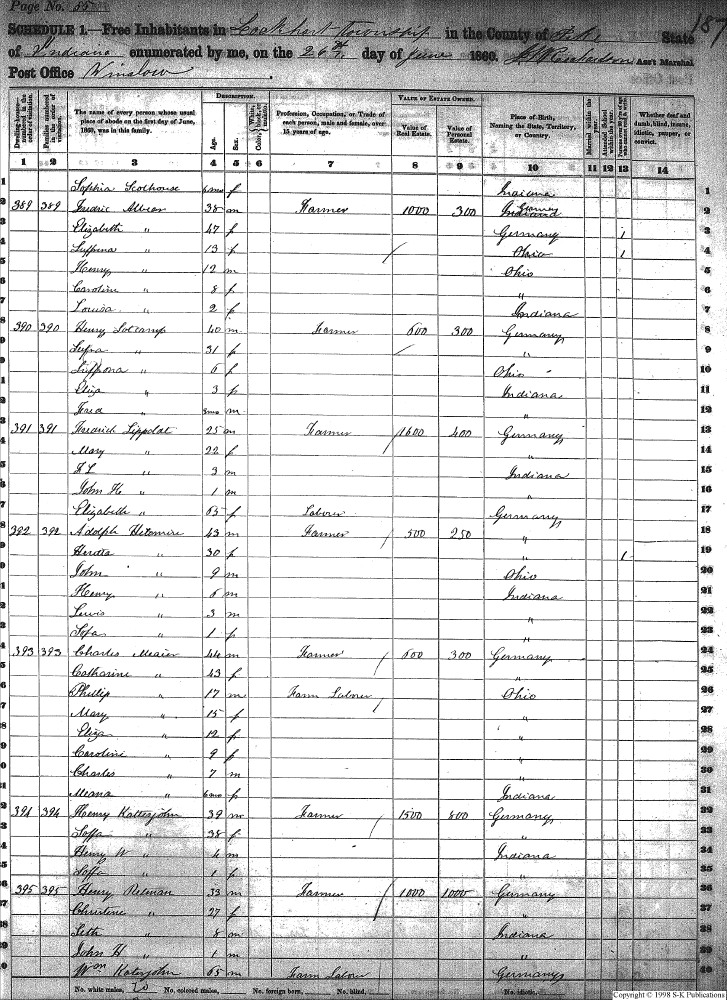 Page No. 55
187
SCHEDULE 1.—Free Inhabitants in Lockhart Township in the County of Pike State
of Indiana enumerated by me, on the 26th day of June 1860. Ass't Marshal
Post Office Winslow
Dwelling-houses numbered in the order of visitation.
Families numbered in the order of visitation.
The name of every person whose usual place of abode on the first day of June, 1860, was in this family.
DESCRIPTION.
Age.
Sex.
Color, White, black, or mulatto.
Profession, Occupation, or Trade of each person, male and female, over 15 years of age.
VALUE OF ESTATE OWNED.
Value of Real Estate.
Value of Personal Estate.
Place of Birth, Naming the State, Territory, or Country.
Married within the year.
Attended School within the year.
Whether deaf and dumb, blind, insane, idiotic, pauper, or convict.
1 2 3 4 5 6 7 8 9 10 11 12 13 14
1 Sophia 6mo f Indiana 1
2 389 389 Fredric 38 m Farmer 1000 300 Germany 2
3 Elizabeth " 47 f Germany 1 3
4 " 13 f / Ohio 1 4
5 Henry " 12 m Ohio 5
6 Caroline " 8 f " 6
7 Louisa " 2 f Indiana 7
8 390 390 Henry 40 m Farmer 600 300 Germany 8
9 " 31 f " 9
10 " 6 f Ohio 10
11 Eliza " 3 f Indiana 11
12 Fred " 8mo m " 12
13 391 391 Fredrich Lippoldt 25 m Farmer 1600 400 Germany 13
14 Mary " 22 f " 14
15 " 3 m Indiana 15
16 John H " 1 m " 16
17 Elizabeth " 65 f Laborer Germany 17
18 392 392 Adolph 43 m Farmer 500 250 " 18
19 " 30 f " 1 19
20 John " 9 m Ohio 20
21 Henry " 6 m Indiana 21
22 Lewis " 3 m " 22
23 Sofa " 1 f " 23
24 393 393 Charles Meaier 44 m Farmer 600 300 Germany 24
25 Catharine " 43 f " 25
26 Phillip " 17 m Farm Laborer Ohio 26
27 Mary " 15 f " 27
28 Eliza " 12 f " 28
29 Caroline " 9 f " 29
30 Charles " 7 m " 30
31 Meana " 6mo f Indiana 31
32 394 394 Henry Katterjohn 39 m Farmer 1500 800 Germany 32
33 Soffa " 38 f " 33
34 Henry W " 4 m Indiana 34
35 Soffa " 1 f " 35
36 395 395 Henry Reteman 33 m Farmer 1000 1000 Germany 36
37 Christine " 27 f " 37
38 Seth " 8 m Indiana 38
39 John H " 1 m " 39
40 Wm Katerjohn 65 m Farm Labor Germany 40
No. white males, 20 No. colored males, No. foreign born, No. blind, No. idiotic,
Copyright © 1998 S-K Publications